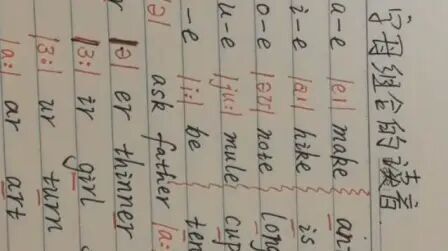 字母组合的读音
a-e |eɪ| make
i-e |aɪ| hike is
o-e |əʊ| note long
u-e |ju:| mule cup
-e |i:| be ten
|ə| ask father |a:|
|ə| er thinner
|ɜ:| ir girl
|ɜ:| ur turn
|a:| ar art